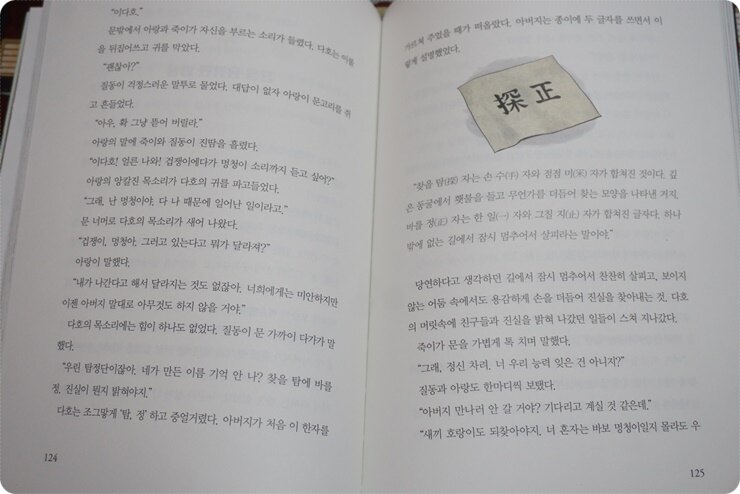 "이다호."
문밖에서 아랑과 죽이가 자신을 부르는 소리가 들렸다. 다호는 이불
을 뒤집어쓰고 귀를 막았다.
"괜찮아?"
질동이 걱정스러운 말투로 물었다. 대답이 없자 아랑이 문고리를 쥐
고 흔들었다.
"아우, 확 그냥 뜯어 버릴라."
아랑의 말에 죽이와 질동이 진땀을 흘렸다.
"이다호! 얼른 나와! 겁쟁이에다가 명청이 소리까지 듣고 싶어?"
아랑의 앙칼진 목소리가 다호의 귀를 파고들었다.
"그래, 난 명청이야. 다 나 때문에 일어난 일이라고."
문 너머로 다호의 목소리가 새어 나왔다.
"겁쟁이, 명청아. 그러고 있는다고 뭐가 달라져?"
아랑이 말했다.
"내가 나간다고 해서 달라지는 것도 없잖아. 너희에게는 미안하지만
이젠 아버지 말대로 아무것도 하지 않을 거야."
다호의 목소리에는 힘이 하나도 없었다. 질동이 문 가까이 다가가 말
했다.
"우린 탐정단이잖아. 네가 만든 이름 기억 안 나? 찾을 탐에 바를
정, 진실이 뭔지 밝혀야지."
다호는 조그맣게 '탐, 정' 하고 중얼거렸다. 아버지가 처음 이 한자를
124
가르쳐 주었을 때가 떠올랐다. 아버지는 종이에 두 글자를 쓰면서 이
렇게 설명했었다.
探正
"찾을 탐(探) 자는 손 수(手) 자와 점점 미(罙) 자가 합쳐진 것이다. 깊
은 동굴에서 횃불을 들고 무언가를 더듬어 찾는 모양을 나타낸 거지.
바를 정(正) 자는 한 일(一) 자와 그칠 지(止) 자가 합쳐진 글자다. 하나
밖에 없는 길에서 잠시 멈추어서 살피라는 말이야."
당연하다고 생각하던 길에서 잠시 멈추어서 찬찬히 살피고, 보이지
않는 어둠 속에서도 용감하게 손을 더듬어 진실을 찾아내는 것. 다호
의 머릿속에 친구들과 진실을 밝혀 나갔던 일들이 스쳐 지나갔다.
죽이가 문을 가볍게 톡 치며 말했다.
"그래, 정신 차려. 너 우리 능력 잊은 건 아니지?"
질동과 아랑도 한마디씩 보탰다.
"아버지 만나러 안 갈 거야? 기다리고 계실 것 같은데."
"새끼 호랑이도 되찾아야지. 너 혼자는 바보 멍청이일지 몰라도 우
125